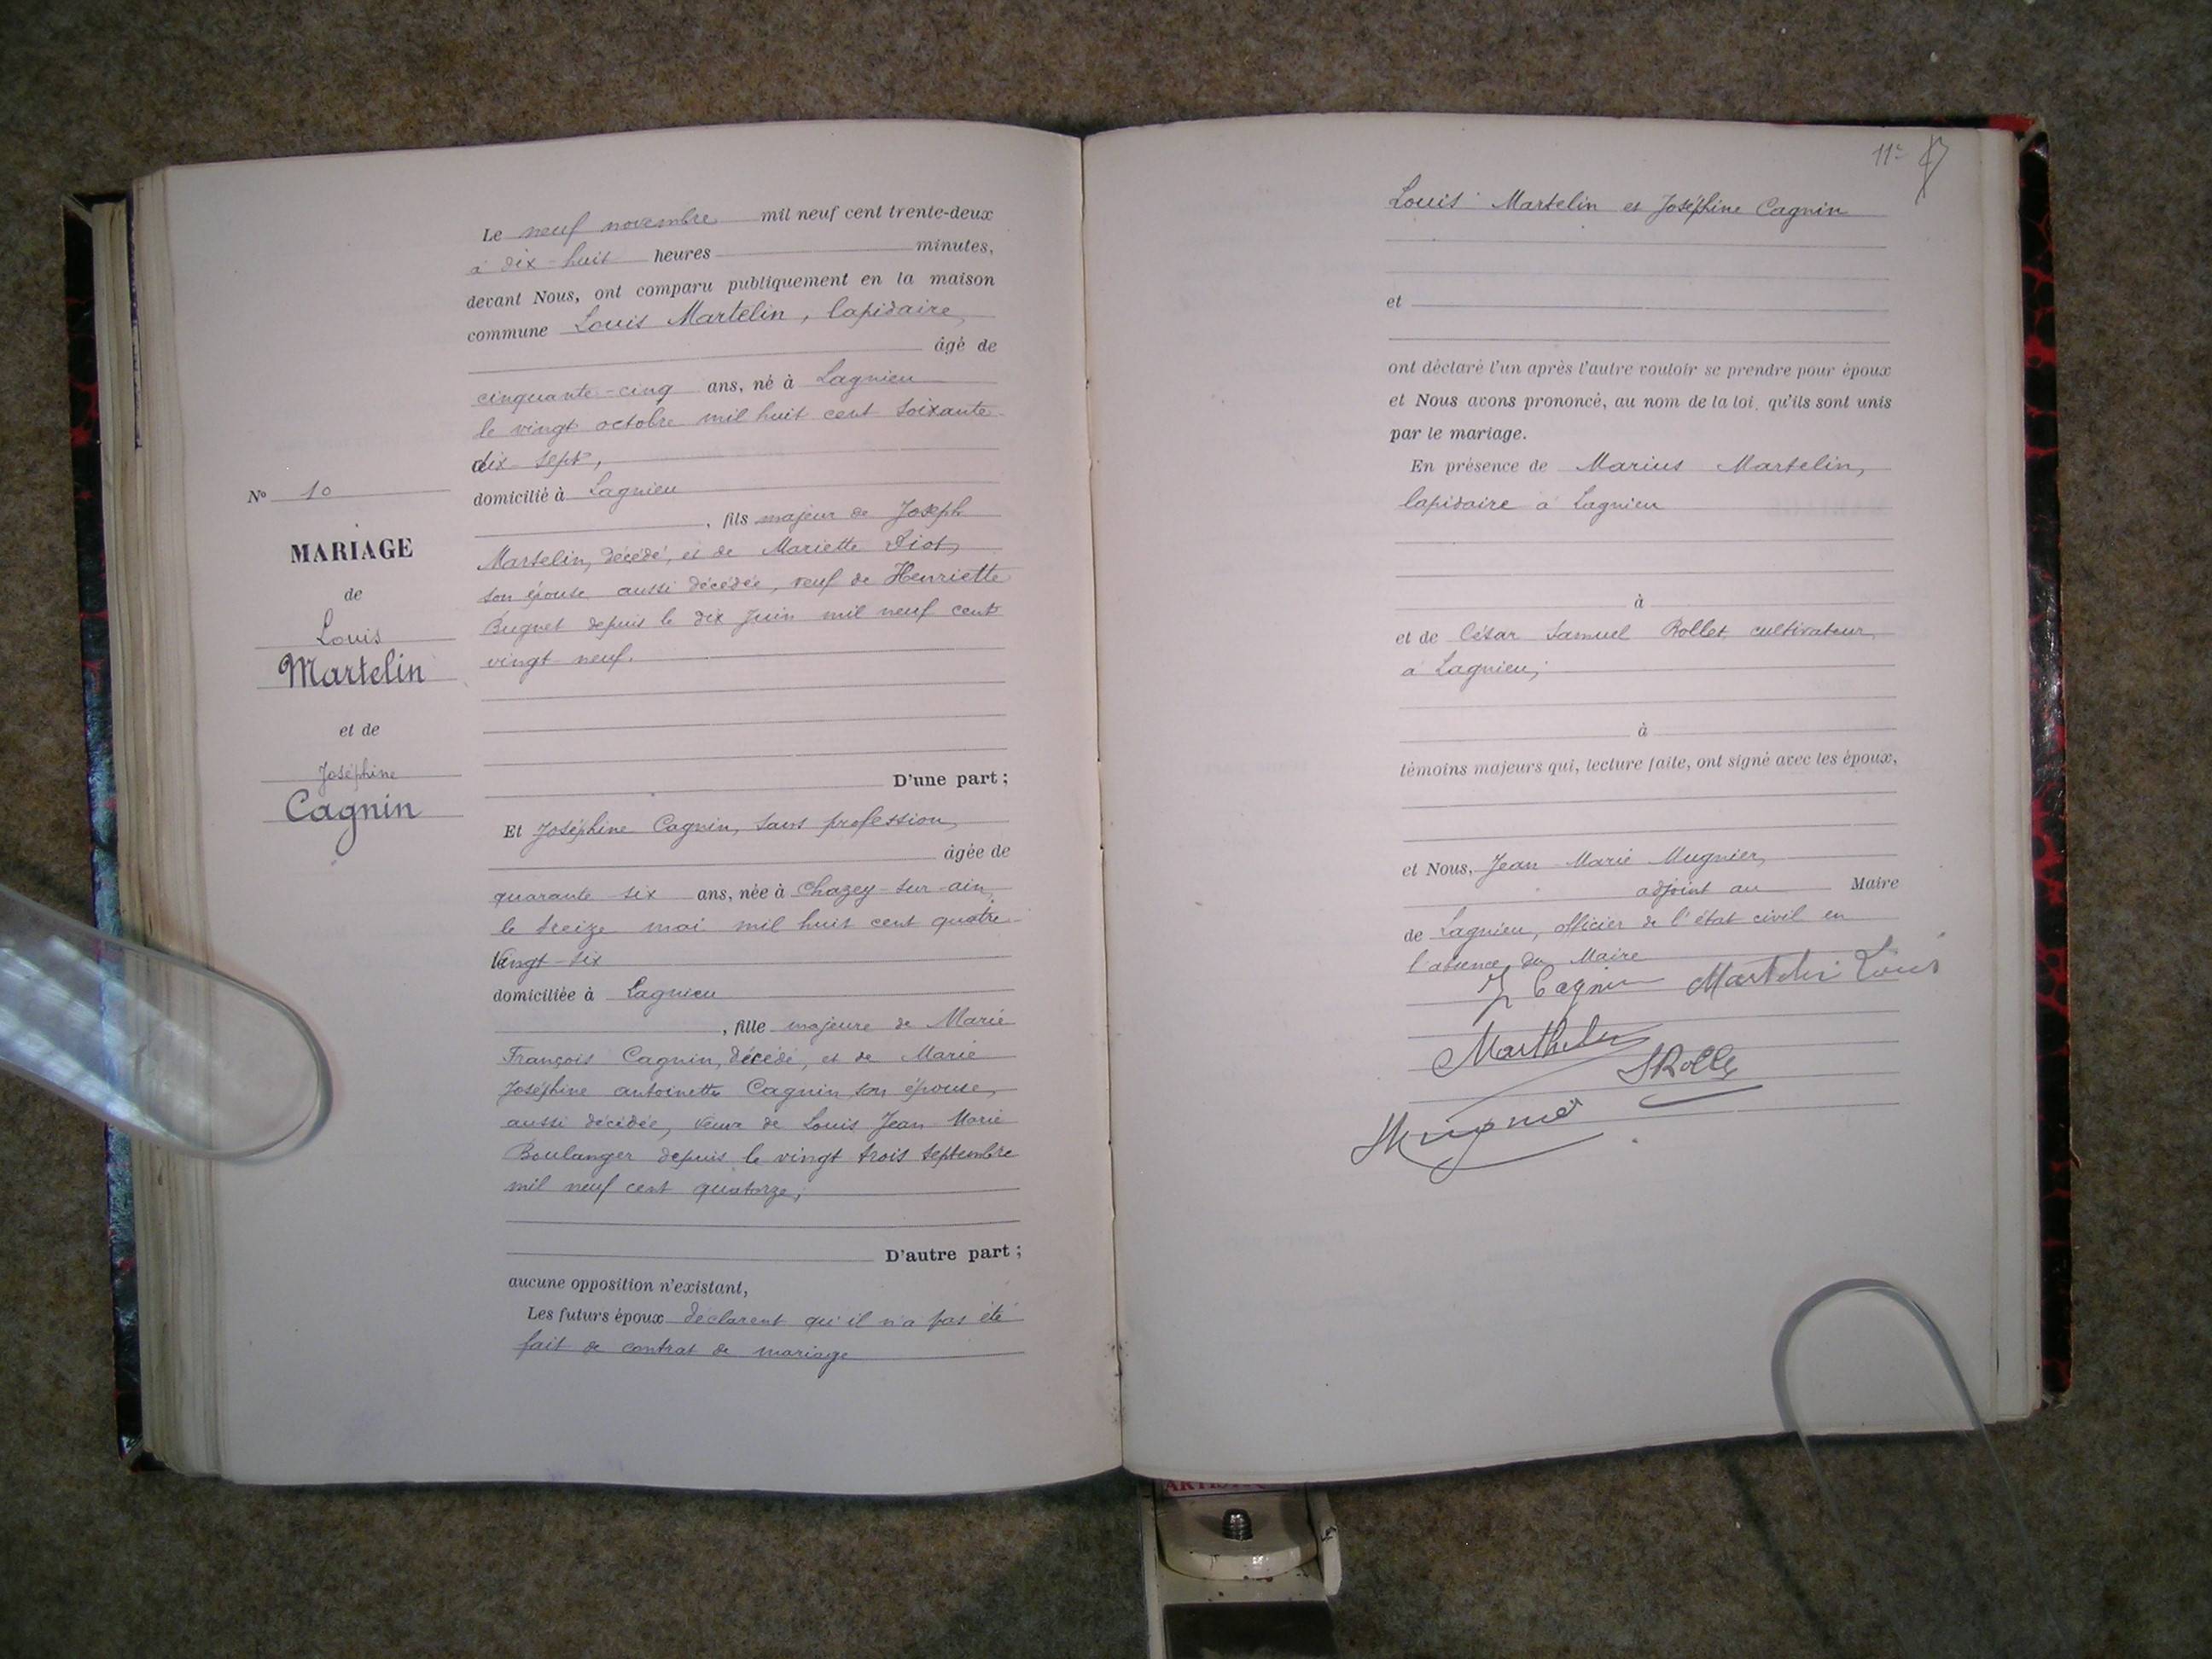 Le neuf novembre mil neuf cent trente-deux
à dix-huit heures minutes,
devant Nous, ont comparu publiquement en la maison
commune Louis Martelin, lapidaire,
âgé de
cinquante-cinq ans, né à Lagnieu
le vingt octobre mil huit cent soixante
dix-sept,
domicilié à Lagnieu
, fils majeur de Joseph
Martelin, décédé, et de Mariette
son épouse aussi décédée, veuf de Henriette
Bugnet depuis le dix juin mil neuf cent
vingt neuf.
D'une part ;
Nº 10
MARIAGE
de
Louis
Martelin
et de
Joséphine
Cagnin
Et Joséphine Cagnin, sans profession,
âgée de
quarante-six ans, née à Chazey-sur-ain,
le treize mai mil huit cent quatre
vingt-six
domiciliée à Lagnieu
, fille majeure de Marie
François Cagnin, décédé, et de Marie
Joséphine antoinette Cagnin son épouse,
aussi décédée, veuve de Louis Jean Marie
Boulanger depuis le vingt trois septembre
mil neuf cent quatorze;
D'autre part ;
aucune opposition n'existant,
Les futurs époux déclarent qu'il n'a pas été
fait de contrat de mariage
Louis Martelin et Joséphine Cagnin
et
ont déclaré l'un après l'autre vouloir se prendre pour époux
et Nous avons prononcé, au nom de la loi, qu'ils sont unis
par le mariage.
En présence de Marius Martelin,
lapidaire à Lagnieu
à
et de César Samuel Rollet, cultivateur,
à Lagnieu;
à
témoins majeurs qui, lecture faite, ont signé avec les époux,
et Nous, Jean-Marie Mugnier,
adjoint au Maire
de Lagnieu, officier de l'état civil en
l'absence du Maire
J Cagnin Martelin Louis